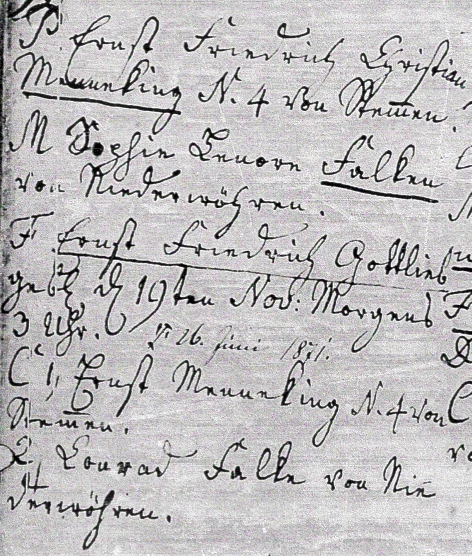 P. Ernst Friedrich Christian
Menneking N. 4 von Stem̅en.
M Sophie Lenore Falken
von Niederwöhren.
F. Ernst Friedrich Gottlieb
geb. d 19ten Nov: Morgens
3 Uhr. 26. Juni 1871.
C 1, Ernst Menneking N. 4 von
Stem̅en.
2, Conrad Falke von Nie
derwöhren.